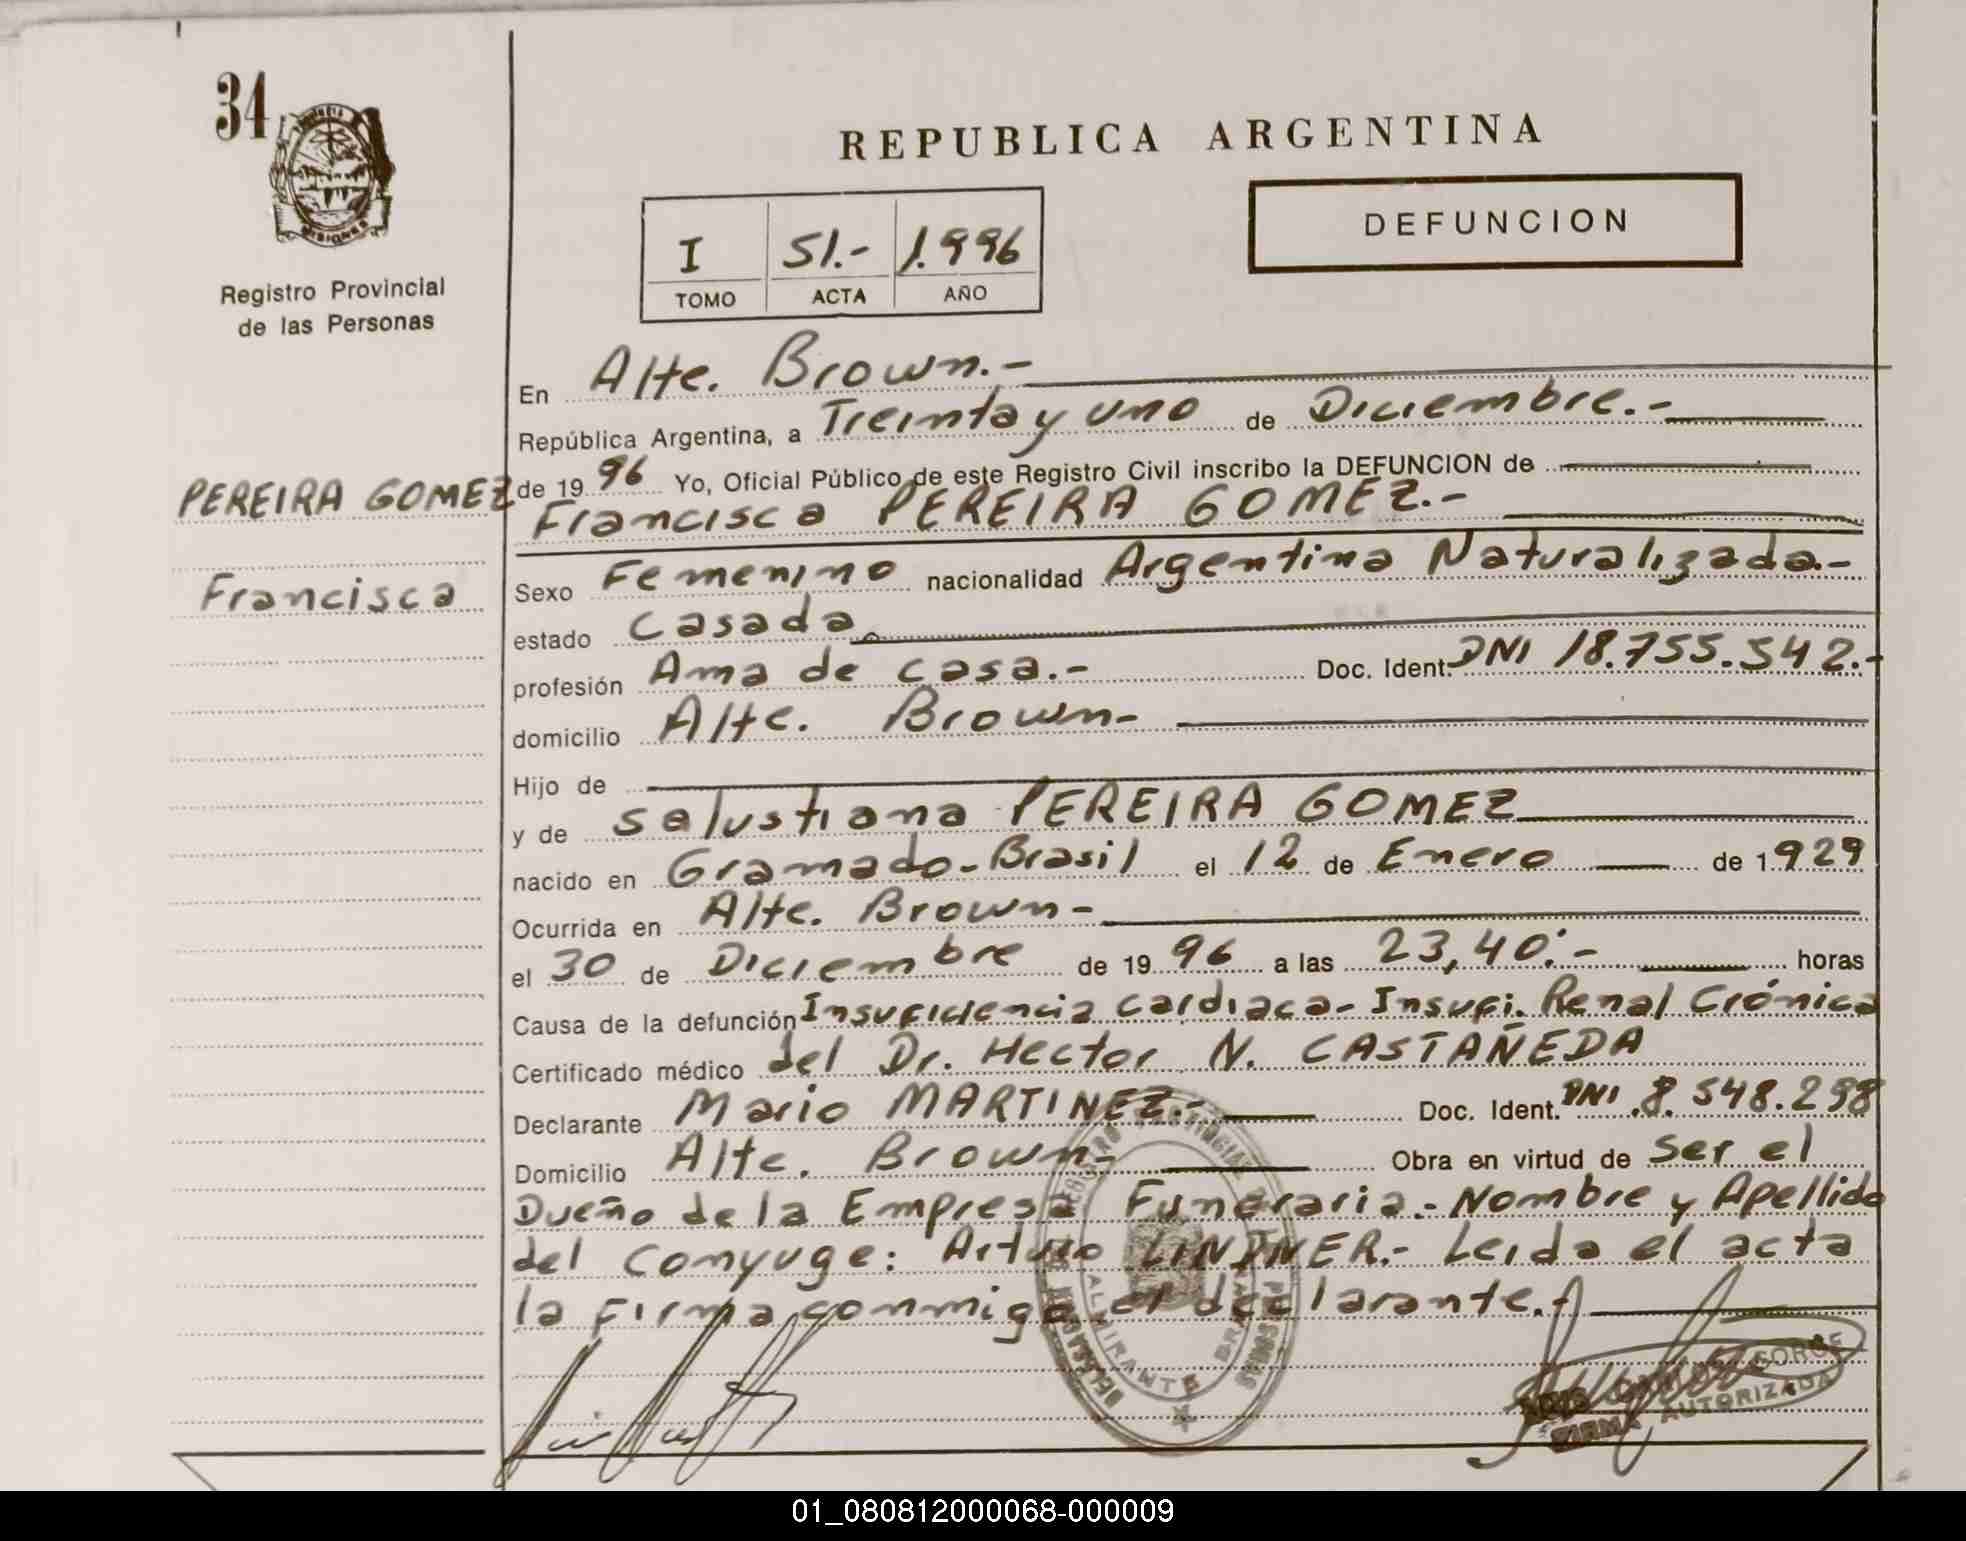 34
REPUBLICA ARGENTINA
DEFUNCION
I 51.- 1.996
TOMO ACTA AÑO
MISIONES
Registro Provincial
de las Personas
En Alte. Brown.-
República Argentina, a Treinta y uno de Diciembre.-
PEREIRA GOMEZ
de 19 96 Yo, Oficial Público de este Registro Civil inscribo la DEFUNCION de
Francisca PEREIRA GOMEZ.-
Francisca
Sexo Femenino nacionalidad Argentina Naturalizada.-
estado Casada
profesión Ama de casa.- Doc. Ident. DNI 18.755.542.-
domicilio Alte. Brown-
Hijo de
y de Salustiana PEREIRA GOMEZ
nacido en Gramado-Brasil el 12 de Enero de 1929
Ocurrida en Alte. Brown-
el 30 de Diciembre de 19 96 a las 23,40:- horas
Causa de la defunción Insuficiencia cardiaca- Insufi. Renal Crónica
Certificado médico del Dr. Hector N. CASTAÑEDA
Declarante Mario MARTINEZ.- Doc. Ident. DNI 8.548.298
Domicilio Alte. Brown- Obra en virtud de Ser el
Dueño de la Empresa Funeraria.- Nombre y Apellido
del Conyuge: Arturo LINDNER.- Leida el acta
la Firma conmigo el declarante.-
REGISTRO PROVINCIAL DE LAS PERSONAS
DELEGACION
ALMIRANTE BROWN
FIRMA AUTORIZADA
01_080812000068-000009